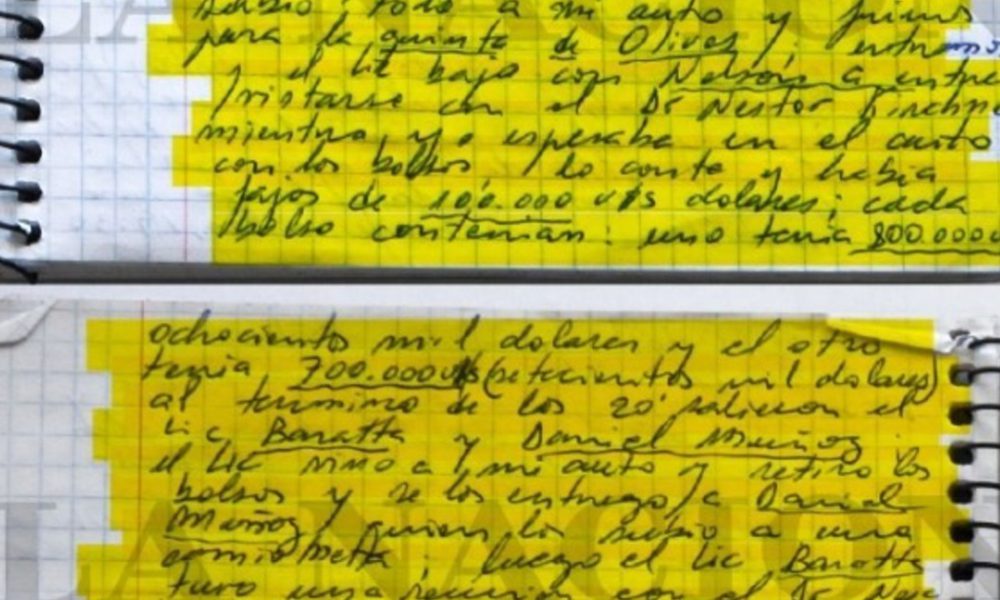 subio todo a mi auto y fuimos
para la quinta de Olivos, entramos
y el Lic bajo con Nelson a entre
/vistarse con el Dr Nestor Kirchn
mientras yo esperaba en el auto
con los bolsos, lo conte y habia
fajos de 100.000 u$s dolares; cada
bolso contenian: uno tenia 800.000u
ochocientos mil dolares y el otro
tenia 700.000u$s (setecientos mil dolares)
al termino de los 20' salieron el
Lic Baratta y Daniel Muñoz
el Lic vino a mi auto y retiro los
bolsos y se los entrego a Daniel
Muñoz quien los subio a una
camioneta, luego el Lic Baratta
tuvo una reunion con el Dr Nes
LA NACION
LA NACION